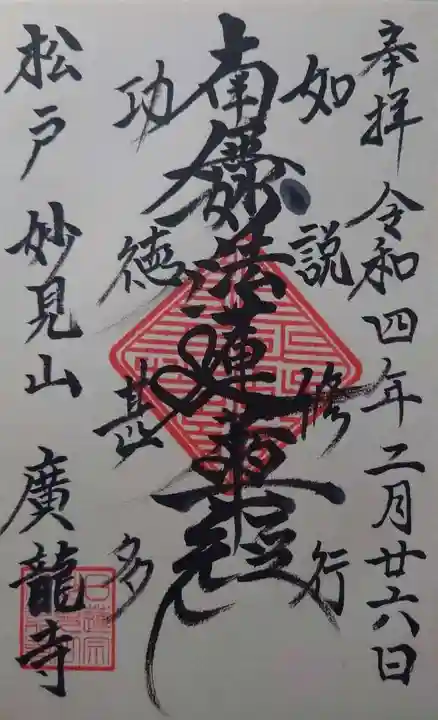 奉拝 令和四年二月廿六日
如説修行
南無妙法蓮華経
功徳甚多
松戸 妙見山 廣龍寺
日蓮宗